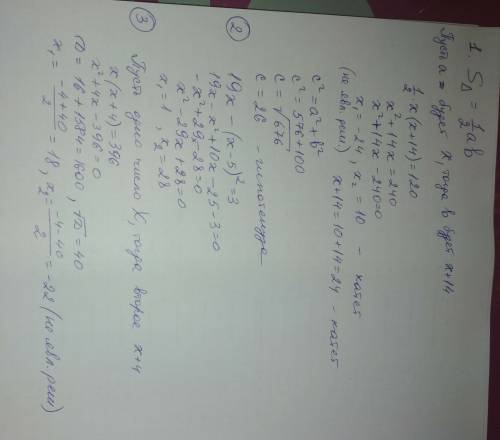 1. S△ = ½ab
Пусть a = будет x, тогда в будет x+14
½x(x+14)=120
x²+14x=240
x²+14x-240=0
x₁=-24, x₂=10 - катет
(не явл. реш) x+14=10+14=24 - катет
c²=a²+b²
c²=576+100
c=√676
c=26 - гипотенуза
② 19x-(x-5)²=3
19x-x²+10x-25-3=0
-x²+29x-28=0
x²-29x+28=0
x₁=1, x₂=28
③ Пусть одно число X, тогда второе x+4
x(x+4)=396
x²+4x-396=0
D=16+1584=1600, √D=40
x₁=(-4+40)/2=18, x₂=(-4-40)/2=-22 (не явл. реш)